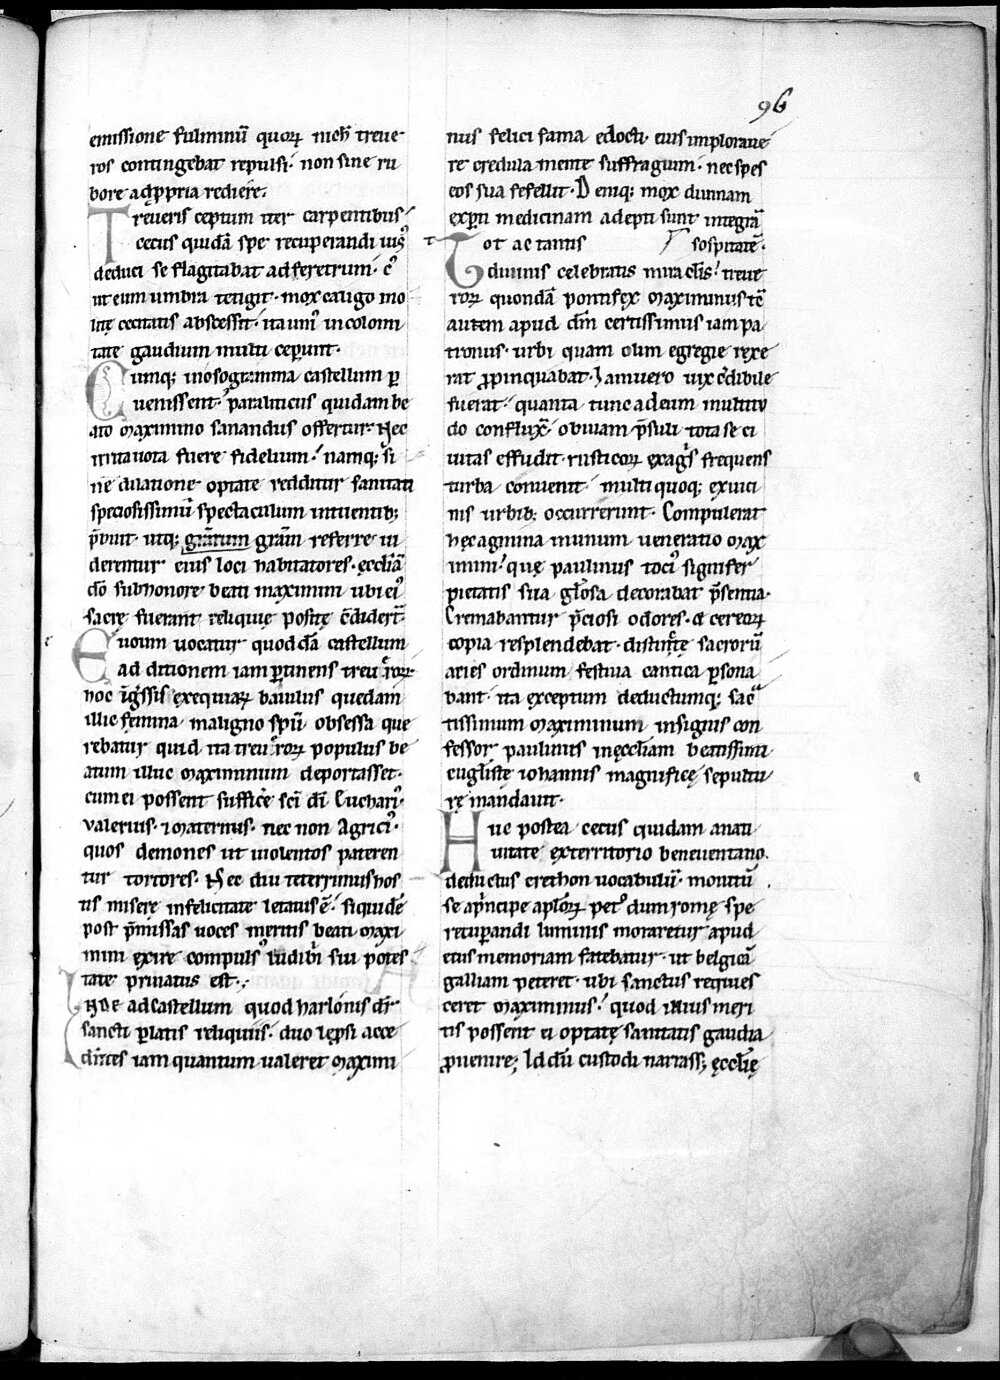 96
emissione fulminū quoꝝ nich̄ treue-
ros contingebat repulsi· non sine ru
bore ad ꝓpria rediere.
Treueris ceptum iter carpentibus
cecus quidā spe recuperandi uis⁹
deduci se flagitabat ad feretrum·
ut eum umbra tetigit· mox caligo mo
litę cecitatis abscessit· ita un̄i incolomi
tate gaudium multi ceꝑunt·
Cumq; mosogramma castellum ꝑ
uenissent· paraliticus quidam be
ato maximino sanandus offertur· Nec
irrita uota fuere fidelium· namq; si
ne dilatione optate redditur sanitati
speciosissimū spectaculum intuentib;
p̄buit· utq; gratum gr̄am referre ui
derentur eius loci habitatores· ęccl̄iā
dō sub honore beati maximini ubi ei⁹
sacrę fuerant reliquię positę c̄diderт̄
Euoium uocatur quoddā castellum
ad ditionem iam ꝑtinens treuꝉroꝝ·
hoc īg̃ssis exequiaꝝ baiulus quedam
illic femina maligno sp̄u obsessa que
rebatur quid ita treuꝉroꝝ populus be
atum illuc maximinum deportasset·
cum ei possent suffic̄e sc̄i dī Euchari⁹
Valerius· ⁊ maternus· nec non Agrici⁹·
quos demones ut uiolentos pateren
tur tortores· Nec diu teterrimus hos
tis miserę infelicitate letatus ē· siquidē
post p̄missas uoces meritis beati maxi
mini exire compuls⁹ ludibri sui potes
tate priuatus est·
Inde ad castellum quod harlonis dr̄
sancti ꝑlatis reliquiis· duo lep̄si acce
d̄ntes iam quantum ualeret maximi
nus felici fama edocti· eius imploraue
re credula mente suffragium· nec spes
eos sua fefellit· Deniq; mox diuinam
exꝑti medicinam adepti sunt integrā
sospitatē·
Tot ac tantis
diuinis celebratis miracl̄is· treue
roꝝ quondā pontifex maximinus tc̄
autem apud dm̄ certissimus iam pa
tronus· urbi quam olim egregie rexe
rat ꝓpinquabat· Iam uero uix c̄dibile
fuerat· quanta tunc ad eum multitu
do confluxī· obuiam p̄suli tota se ci
uitas effudit· rusticoꝝ ex ag̃s frequens
turba conuenit· multi quoq; ex uici
nis urbib; occurrerunt· Compulerat
hęc agmina munum ueneratio max
imini· quę paulinus toci⁹ signifer
pietatis sua gl̄osa decorabat p̄sentia·
Cremabantur p̄ciosi odores· & cereoꝝ
copia resplendebat· distin̄te sacrorū
aties ordinum festiua cantica ꝑsona
bant· ita exceptum deductumq; sac̄
tissimum maximinum insignis con
fessor paulinus in ęccl̄iam beatissimi
eugl̄istę iohannis magnificę sepultu
rę mandauit·
Huc postea cecus quidam a nati
uitate ex territorio beneuentano·
deductus erethon uocabulū· monitū
se a p̄ncipe ap̄loꝝ pet⁹ dum romę spe
recuꝑandi luminis moraretur apud
eius memoriam fatebatur· ut belgicā
galliam peteret· ubi sanctus requies
ceret maximinus· quod illius meri
tis possent ei optatę sanitatis gaudia
ꝓuenire; Id dū custodi narrass; ęccl̄ię